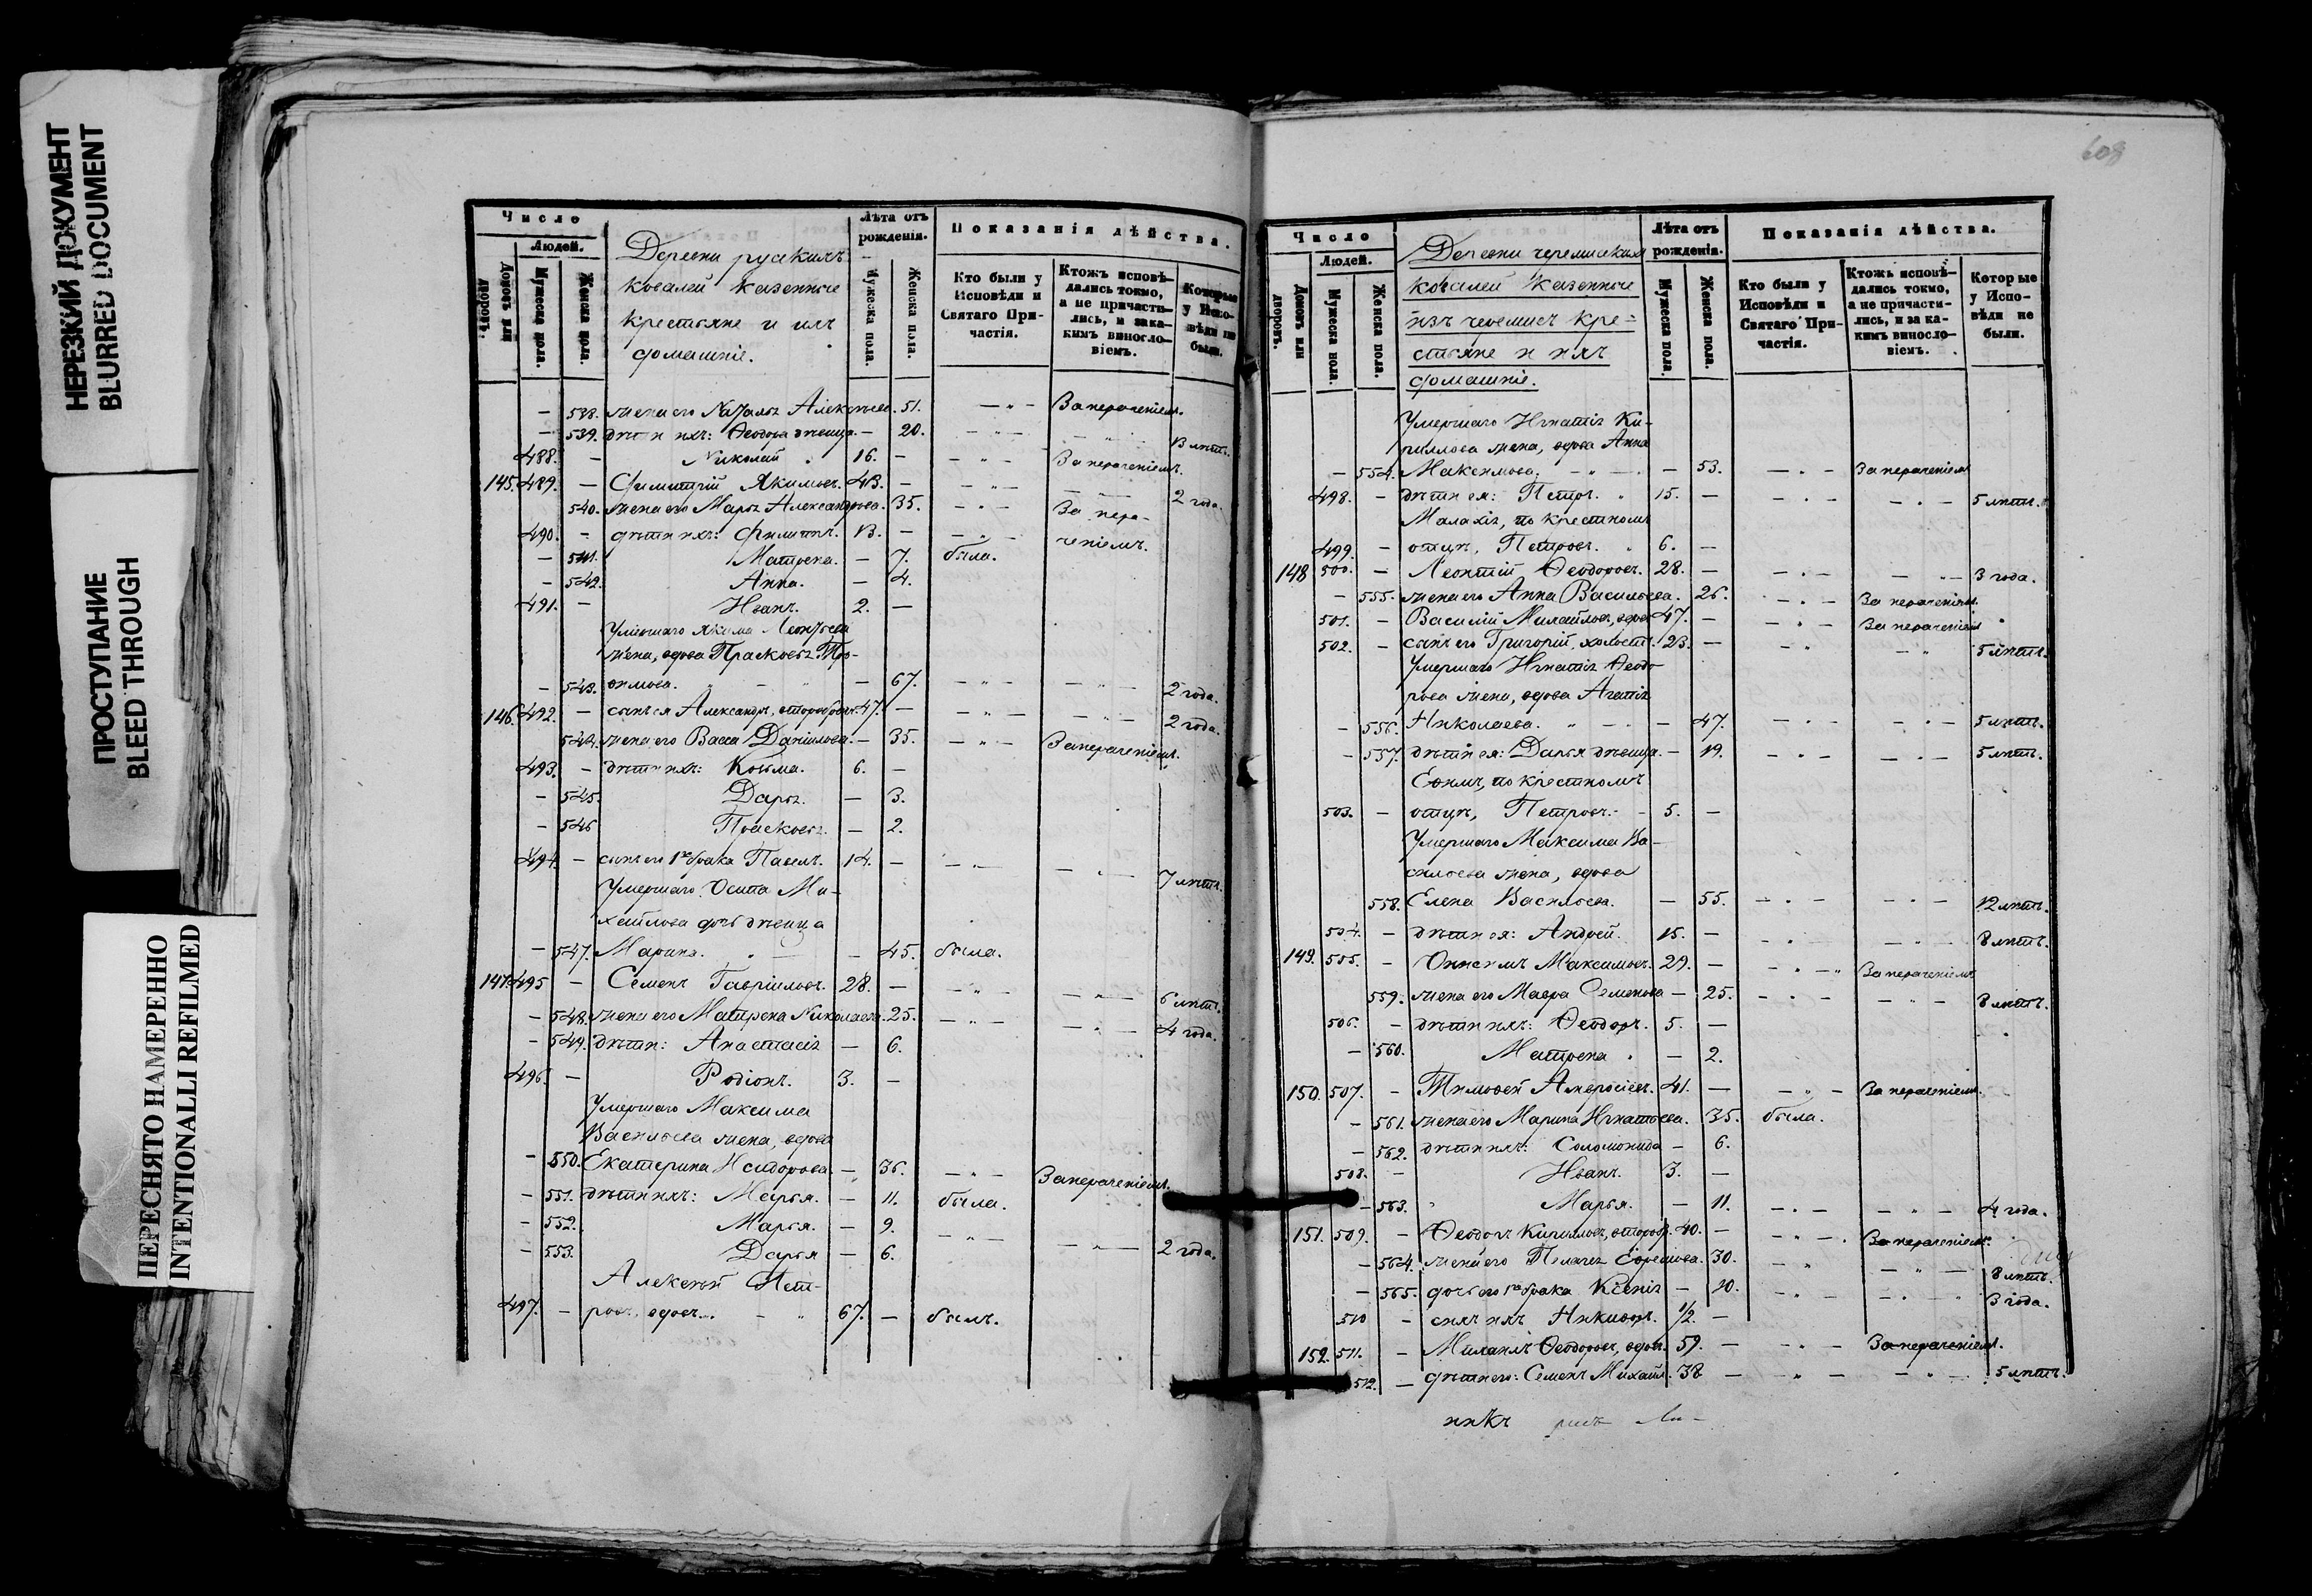 НЕРЕЗКИЙ ДОКУМЕНТ
BLURRED DOCUMENT
ПРОСТУПАНИЕ
BLEED THROUGH
ПЕРЕСНЯТО НАМЕРЕННО
INTENTIONALLI REFILMED
Число
Людей.
Домовъ или дворовъ.
Мужеска пола.
Женска пола.
Деревни рускихъ
Ковалей казенные
крестьяне и ихъ
домашніе.
Лѣта отъ рожденія.
Мужеска пола.
Женска пола.
Показанія дѣйства.
Кто были у Исповѣди и Святаго Причастія.
Ктожъ исповѣдались токмо, а не причастились, и за какимъ винословіемъ.
Которые у Исповѣди не были.
— 538. жена его Наталья Алексѣева. 51. — „ — За нераченіем.
— 539. дѣти ихъ: Ѳеодора дѣвица. — 20. — „ — — „ — 13 лѣтъ.
488. — Николай 16. — — „ — За нераченіемъ.
145. 489. — Димитрій Якимовъ. 43. — — „ — — „ — 2 года.
540. жена его Марья Александрова. 35. — „ — За нера-
490. — дѣти ихъ: Филиппъ. 13. — — „ — ченіемъ.
— 541. Матрена. — 7. была.
— 542. Анна. — 4.
491. — Иванъ. 2. —
Умершаго Якима Леонтьева
жена, вдова Прасковья Тро-
— 543. фимова. — 67. — „ — — „ — 2 года.
146. 492. — сынъ ея Александръ, второбрач. 47. — — „ — — „ — 2 года.
544. жена его Васса Даніилова. — 35. — „ — За нераченіем.
493. — дѣти ихъ: Козьма. 6. —
— 545. Дарья. — 3.
— 546 Прасковья. — 2.
494. — сынъ его 1го брака Павелъ. 14. — — „ — — „ — 7 лѣтъ.
Умершаго Осипа Ми-
хайлова дочь дѣвица
— 547. Марина. — 45. была.
147. 495 — Семенъ Гавріиловъ. 28. — — „ — — „ — 6 лѣтъ.
— 548. жена его Матрена Николаева. 25. — „ — — „ — 4 года.
— 549. дѣти: Анастасія — 6.
496. — Родіонъ. 3. —
Умершаго Максима
Васильева жена, вдова
— 550. Екатерина Исидорова. — 36. — „ — За нераченіем.
— 551. дѣти ихъ: Марья. — 11. была.
— 552. Марья. — 9. — „ —
— 553. Дарья — 6. — „ — 2 года.
Алексѣй Пет-
497. — ровъ, вдовъ. 67. — былъ.
608
Число
Людей.
Домовъ или дворовъ.
Мужеска пола.
Женска пола.
Деревни черемискихъ
Ковалей казенные
изъ черемисъ кре-
стьяне и ихъ
домашніе.
Лѣта отъ рожденія.
Мужеска пола.
Женска пола.
Показанія дѣйства.
Кто были у Исповѣди и Святаго Причастія.
Ктожъ исповѣдались токмо, а не причастились, и за какимъ винословіемъ.
Которые у Исповѣди не были.
Умершаго Игнатія Ки-
риллова жена, вдова Анна
— 554. Максимова. — 53. — „ — За нераченіем
498. — дѣти ея: Петръ. 15. — — „ — — „ — 5 лѣтъ.
Малахія, по крестномъ
499. — отцѣ, Петровъ. 6. —
148 500. — Леонтій Ѳеодоровъ. 28. — — „ — — „ — 3 года.
— 555. жена его Анна Васильева. 26. — „ — За нераченіем.
501. — Василій Михайловъ, вдовъ 47. — — „ — За нераченіем
502. — сынъ его Григорій, холостъ. 23. — — „ — „ 5 лѣтъ.
Умершаго Игнатія Ѳеодо-
рова жена, вдова Агапія
— 556. Николаева. — 47. — „ — — „ — 5 лѣтъ.
— 557. дѣти ея: Дарья дѣвица. — 19. — „ — — „ — 5 лѣтъ.
Ефимъ, по крестномъ
503. — отцѣ, Петровъ. 5. —
Умершаго Максима Ва-
сильева жена, вдова
558. Елена Васильева. — 55. — „ — — „ — 12 лѣтъ.
504. — дѣти ея: Андрей. 15. — — „ — — „ — 8 лѣтъ.
149. 505. — Онисимъ Максимовъ. 29. — — „ — За нераченіемъ
559. жена его Мавра Семенова — 25. — „ — — „ — 8 лѣтъ.
506. — дѣти ихъ: Ѳеодоръ. 5. —
— 560. Матрена — 2.
150. 507. — Тимоѳей Амвросіевъ. 41. — — „ — За нераченіем.
— 561. жена его Марина Игнатьева. 35. была.
— 562. дѣти ихъ: Соломонида — 6.
508. — Иванъ. 3. —
— 563. Марья. — 11. — „ — — „ — 4 года.
151. 509. — Ѳеодоръ Кирилловъ, второбр. 40. — — „ — За нераченіем.
— 564. жена его Пелагея Ефремова. 30. — „ — „ — 8 лѣтъ.
— 565. дочь его 1го брака Ксенія — 20. — „ — — „ 3 года.
510 — сынъ ихъ Никифоръ. 1/2. —
152. 511. — Михаилъ Ѳеодоровъ, вдовъ. 59. — — „ — За нераченіем.
512. — дѣти его: Семенъ Михайл. 38 — — „ — — „ — 5 лѣтъ.